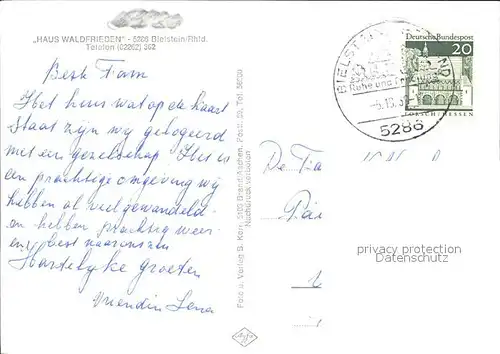 „HAUS WALDFRIEDEN“ - 5286 Bielstein/Rhld.
Telefon (02262) 362
Beste Fam
Het huis wat op de kaart
staat zijn wij gelogeerd
met een gezelschap. Het is
een prachtige omgeving wij
hebben al veel gewandeld
en hebben prachtig weer
en best naar onze zin
Hartelijke groeten
Vriendin Lena
Foto u. Verlag B. Korr, 5100 Brand/Aachen, Postf. 29, Tel.
Nachdruck verboten
BIELSTEIN
Ruhe und
5286
Deutsche Bundespost
20
LORSCH/HESSEN
De Fa
privacy protection
Datenschutz